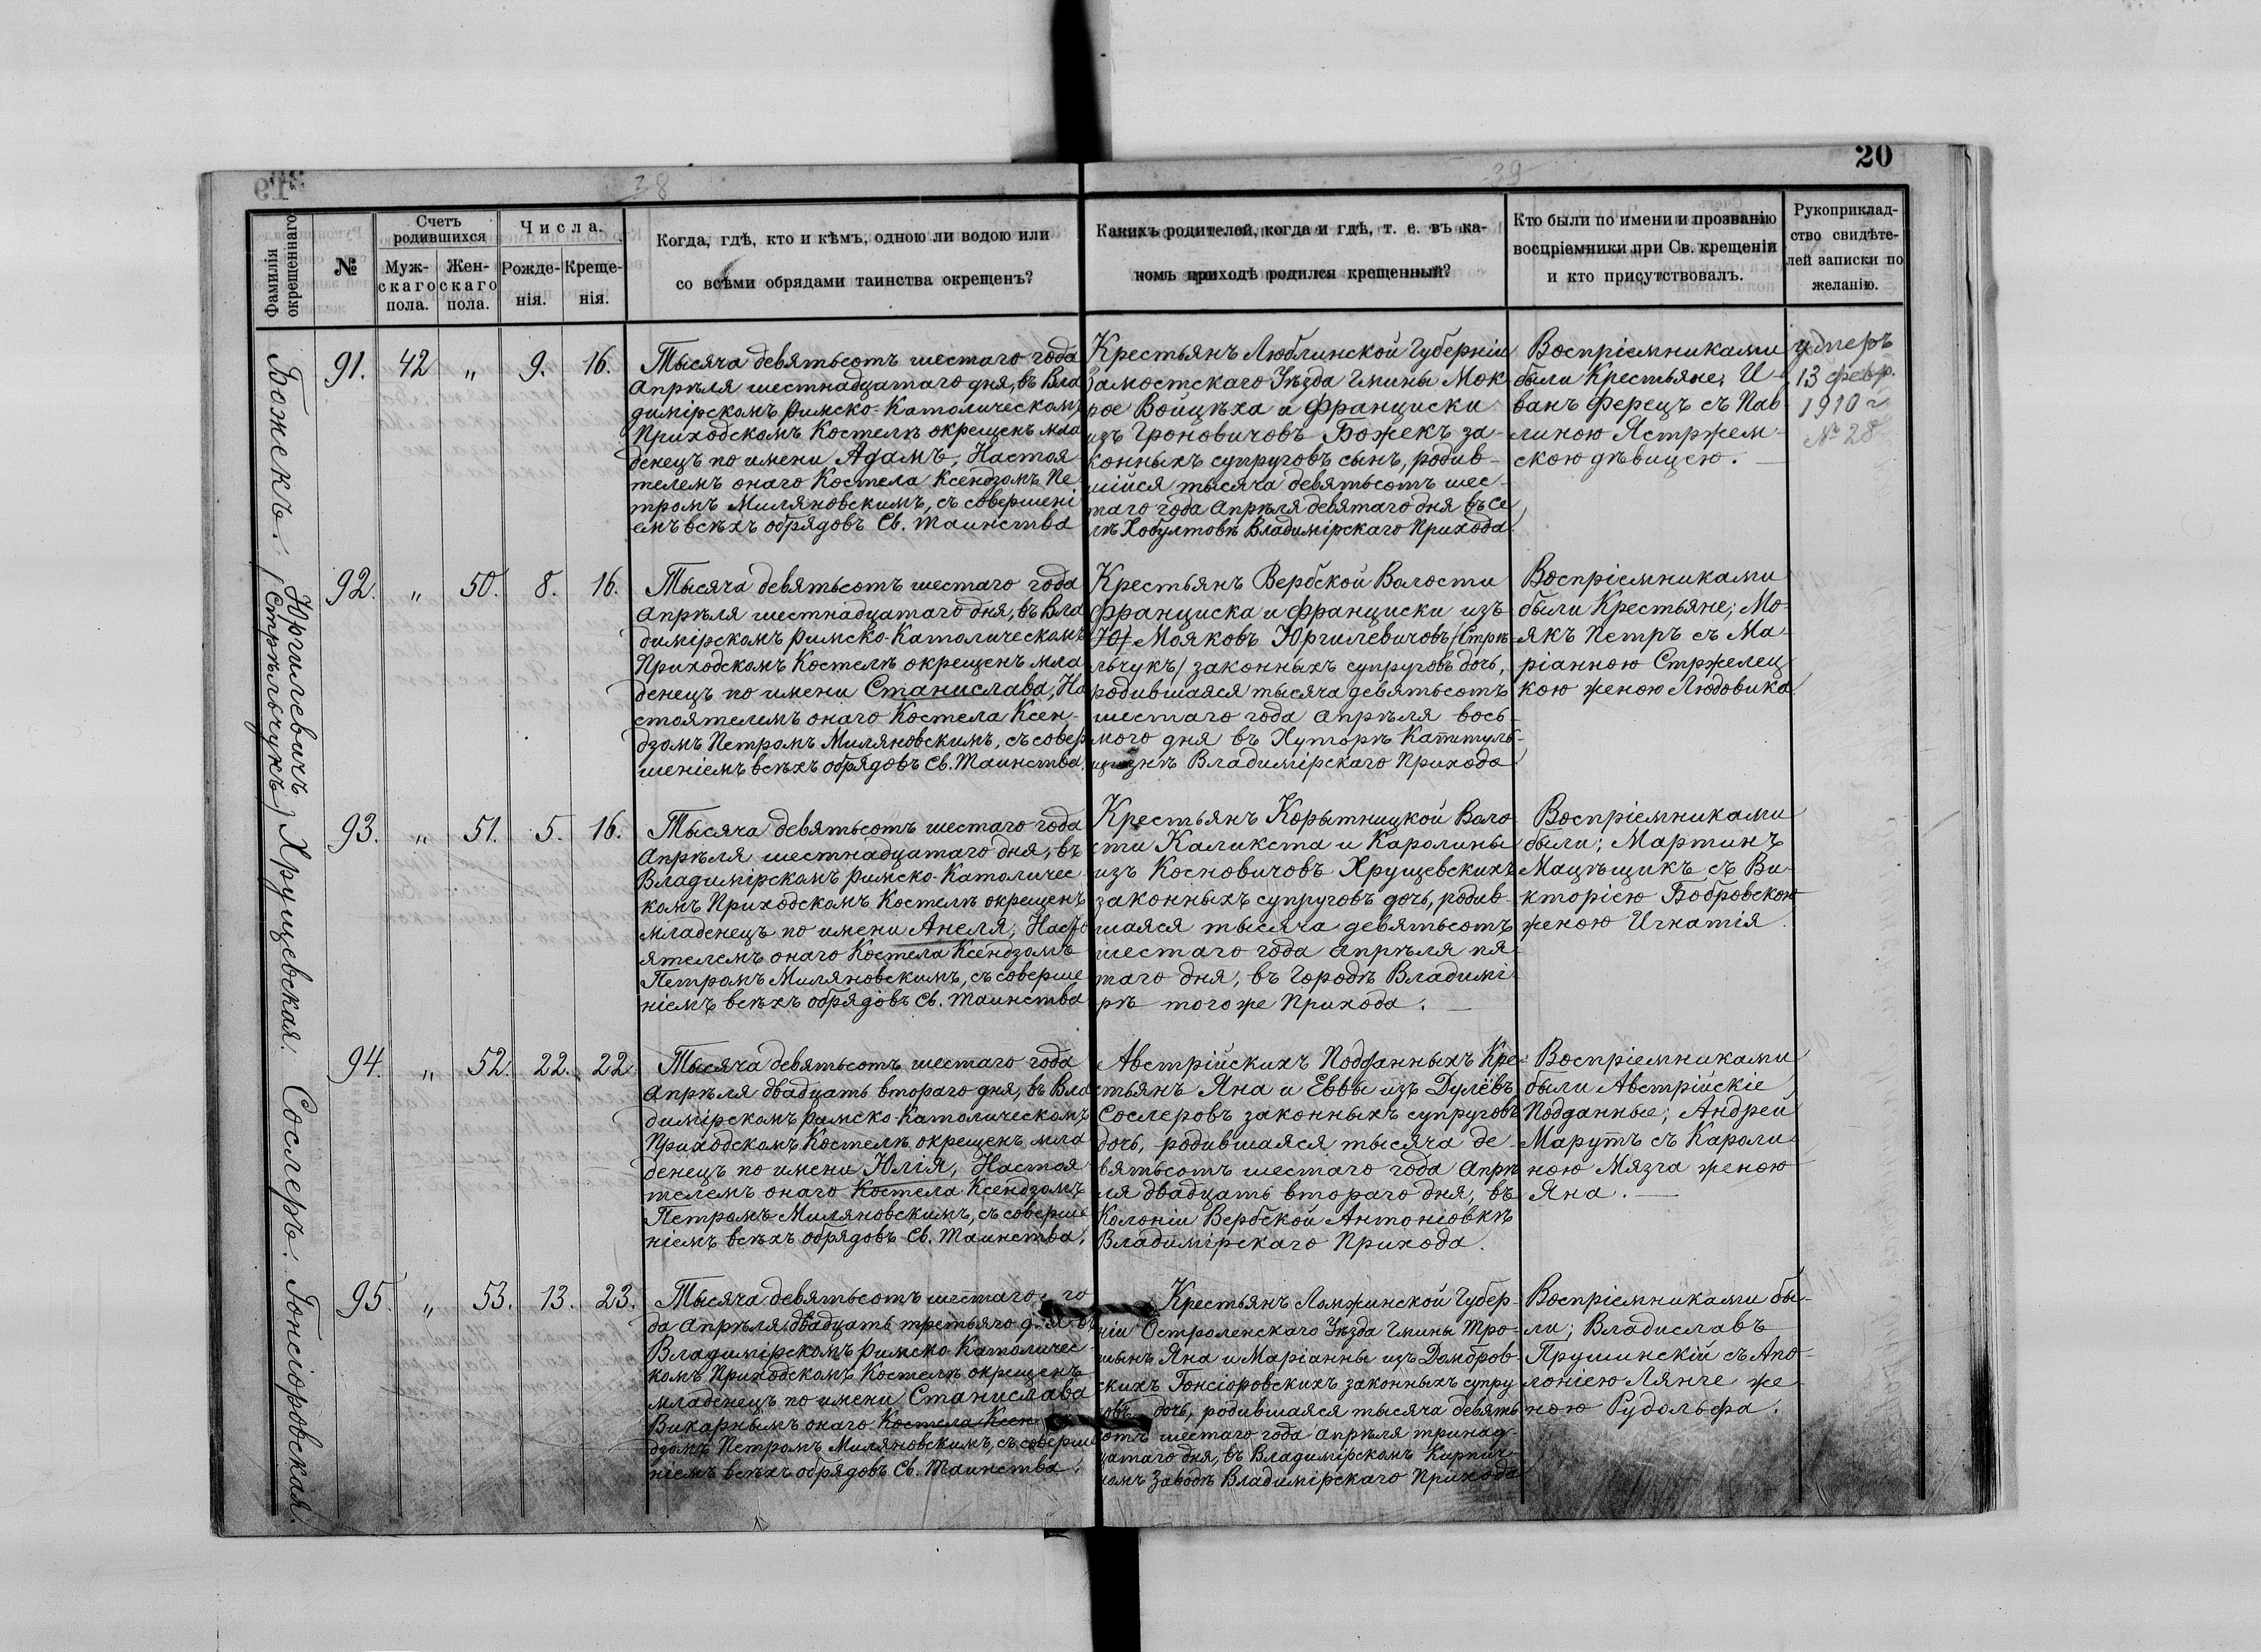 20
38
39
Фамилія окрещеннаго.
№
Счетъ родившихся
Муж-скаго пола.
Жен-скаго пола.
Числа.
Рожде-нія.
Креще-нія.
Когда, гдѣ, кто и кѣмъ, одною ли водою или
со всѣми обрядами таинства окрещенъ?
Какихъ родителей, когда и гдѣ, т. е. въ ка-
комъ приходѣ родился крещенный?
Кто были по имени и прозванію
воспріемники при Св. крещеніи
и кто присутствовалъ.
Рукоприклад-
ство свидѣте-
лей записки по
желанію.
Божекъ.
91. 42 „ 9. 16.
Тысяча девятьсотъ шестаго года
Апрѣля шестнадцатаго дня, въ Вла
димірскомъ Римско-Католическомъ
Приходскомъ Костелѣ окрещенъ мла
денецъ по имени Адамъ, Настоя
телемъ онаго Костела Ксендзомъ Пе
тромъ Миляновскимъ, съ совершені
емъ всѣхъ обрядовъ Св. Таинства
Крестьянъ Люблинской Губерніи
Замостскаго Уѣзда Гмины Мок
рое Войцѣха и Франциски
изъ Гроновичовъ Божекъ за-
конныхъ супруговъ сынъ, родив-
шійся тысяча девятьсотъ шес-
таго года Апрѣля девятаго дня въ се
лѣ Хобултовѣ Владимірскаго Прихода.
Воспріемниками
были Крестьяне; И-
ванъ Ферецъ съ Пав-
линою Ястржем-
скою дѣвицею.
умеръ
13 февр.
1910 г
№ 28
Юргилевичъ
(Стрѣльчукъ)
92. „ 50. 8. 16.
Тысяча девятьсотъ шестаго года
Апрѣля шестнадцатаго дня, въ Вла
димірскомъ Римско-Католическомъ
Приходскомъ Костелѣ окрещенъ мла
денецъ по имени Станислава, На
стоятелемъ онаго Костела Ксен-
дзомъ Петромъ Миляновскимъ, съ совер
шеніемъ всѣхъ обрядовъ Св. Таинства.
Крестьянъ Вербской Волости
Франциска и Франциски изъ
Мояковъ Юргилевичовъ (Стрѣ-
льчукъ) законныхъ супруговъ дочь,
родившаяся тысяча девятьсотъ
шестаго года Апрѣля вось-
мого дня въ Хуторѣ Капитуль-
щизнѣ Владимірскаго Прихода.
Воспріемниками
были Крестьяне; Мо-
якъ Петръ съ Ма-
ріанною Стржелец
кою женою Людовика.
Хрущевская.
93. „ 51. 5. 16.
Тысяча девятьсотъ шестаго года
Апрѣля шестнадцатаго дня, въ
Владимірскомъ Римско-Католичес-
комъ Приходскомъ Костелѣ окрещенъ
младенецъ по имени Анеля, Насто
ятелемъ онаго Костела Ксендзомъ
Петромъ Миляновскимъ, съ соверше
ніемъ всѣхъ обрядовъ Св. Таинства
Крестьянъ Корытницкой Воло
сти Каликста и Каролины
изъ Косновичовъ Хрущевскихъ
законныхъ супруговъ дочь, родив-
шаяся тысяча девятьсотъ
шестаго года Апрѣля пя-
таго дня, въ Городѣ Владимі-
рѣ того же Прихода.
Воспріемниками
были; Мартинъ
Мацѣщикъ съ Ви-
кторіею Бобровскою
женою Игнатія.
Сослеръ.
94. „ 52. 22. 22
Тысяча девятьсотъ шестаго года
Апрѣля двадцать втораго дня, въ Вла
димірскомъ Римско-Католическомъ
Приходскомъ Костелѣ окрещенъ мла
денецъ по имени Юлія, Настоя
телемъ онаго Костела Ксендзомъ
Петромъ Миляновскимъ, съ соверше
ніемъ всѣхъ обрядовъ Св. Таинства.
Австрійскихъ Подданныхъ Кре-
стьянъ Яна и Еввы изъ Дулёвъ
Сослеровъ законныхъ супруговъ
дочь, родившаяся тысяча де-
вятьсотъ шестаго года Апрѣ
ля двадцать втораго дня, въ
Колоніи Вербской Антоніовкѣ
Владимірскаго Прихода.
Воспріемниками
были Австрійскіе
Подданные; Андрей
Марутъ съ Кароли
ною Мязга женою
Яна.
Гонсіоровская.
95. „ 53. 13. 23.
Тысяча девятьсотъ шестаго го
да Апрѣля двадцать третьяго дня въ
Владимірскомъ Римско Католичес
комъ Приходскомъ Костелѣ окрещенъ
младенецъ по имени Станислава
Викарнымъ онаго Костела Ксен
дзомъ Петромъ Миляновскимъ, съ соверше
ніемъ всѣхъ обрядовъ Св. Таинства.
Крестьянъ Ломжинской Губер-
ніи Остроленскаго Уѣзда Гмины Тро-
шынъ Яна и Маріанны изъ Домбров-
скихъ Гонсіоровскихъ законныхъ супру
говъ дочь, родившаяся тысяча девять
сотъ шестаго года Апрѣля тринад-
цатаго дня, въ Владимірскомъ Кирпич-
номъ Заводѣ Владимірскаго Прихода
Воспріемниками бы-
ли; Владиславъ
Прушинскій съ Апо-
лоніею Лянге же-
ною Рудольфа.